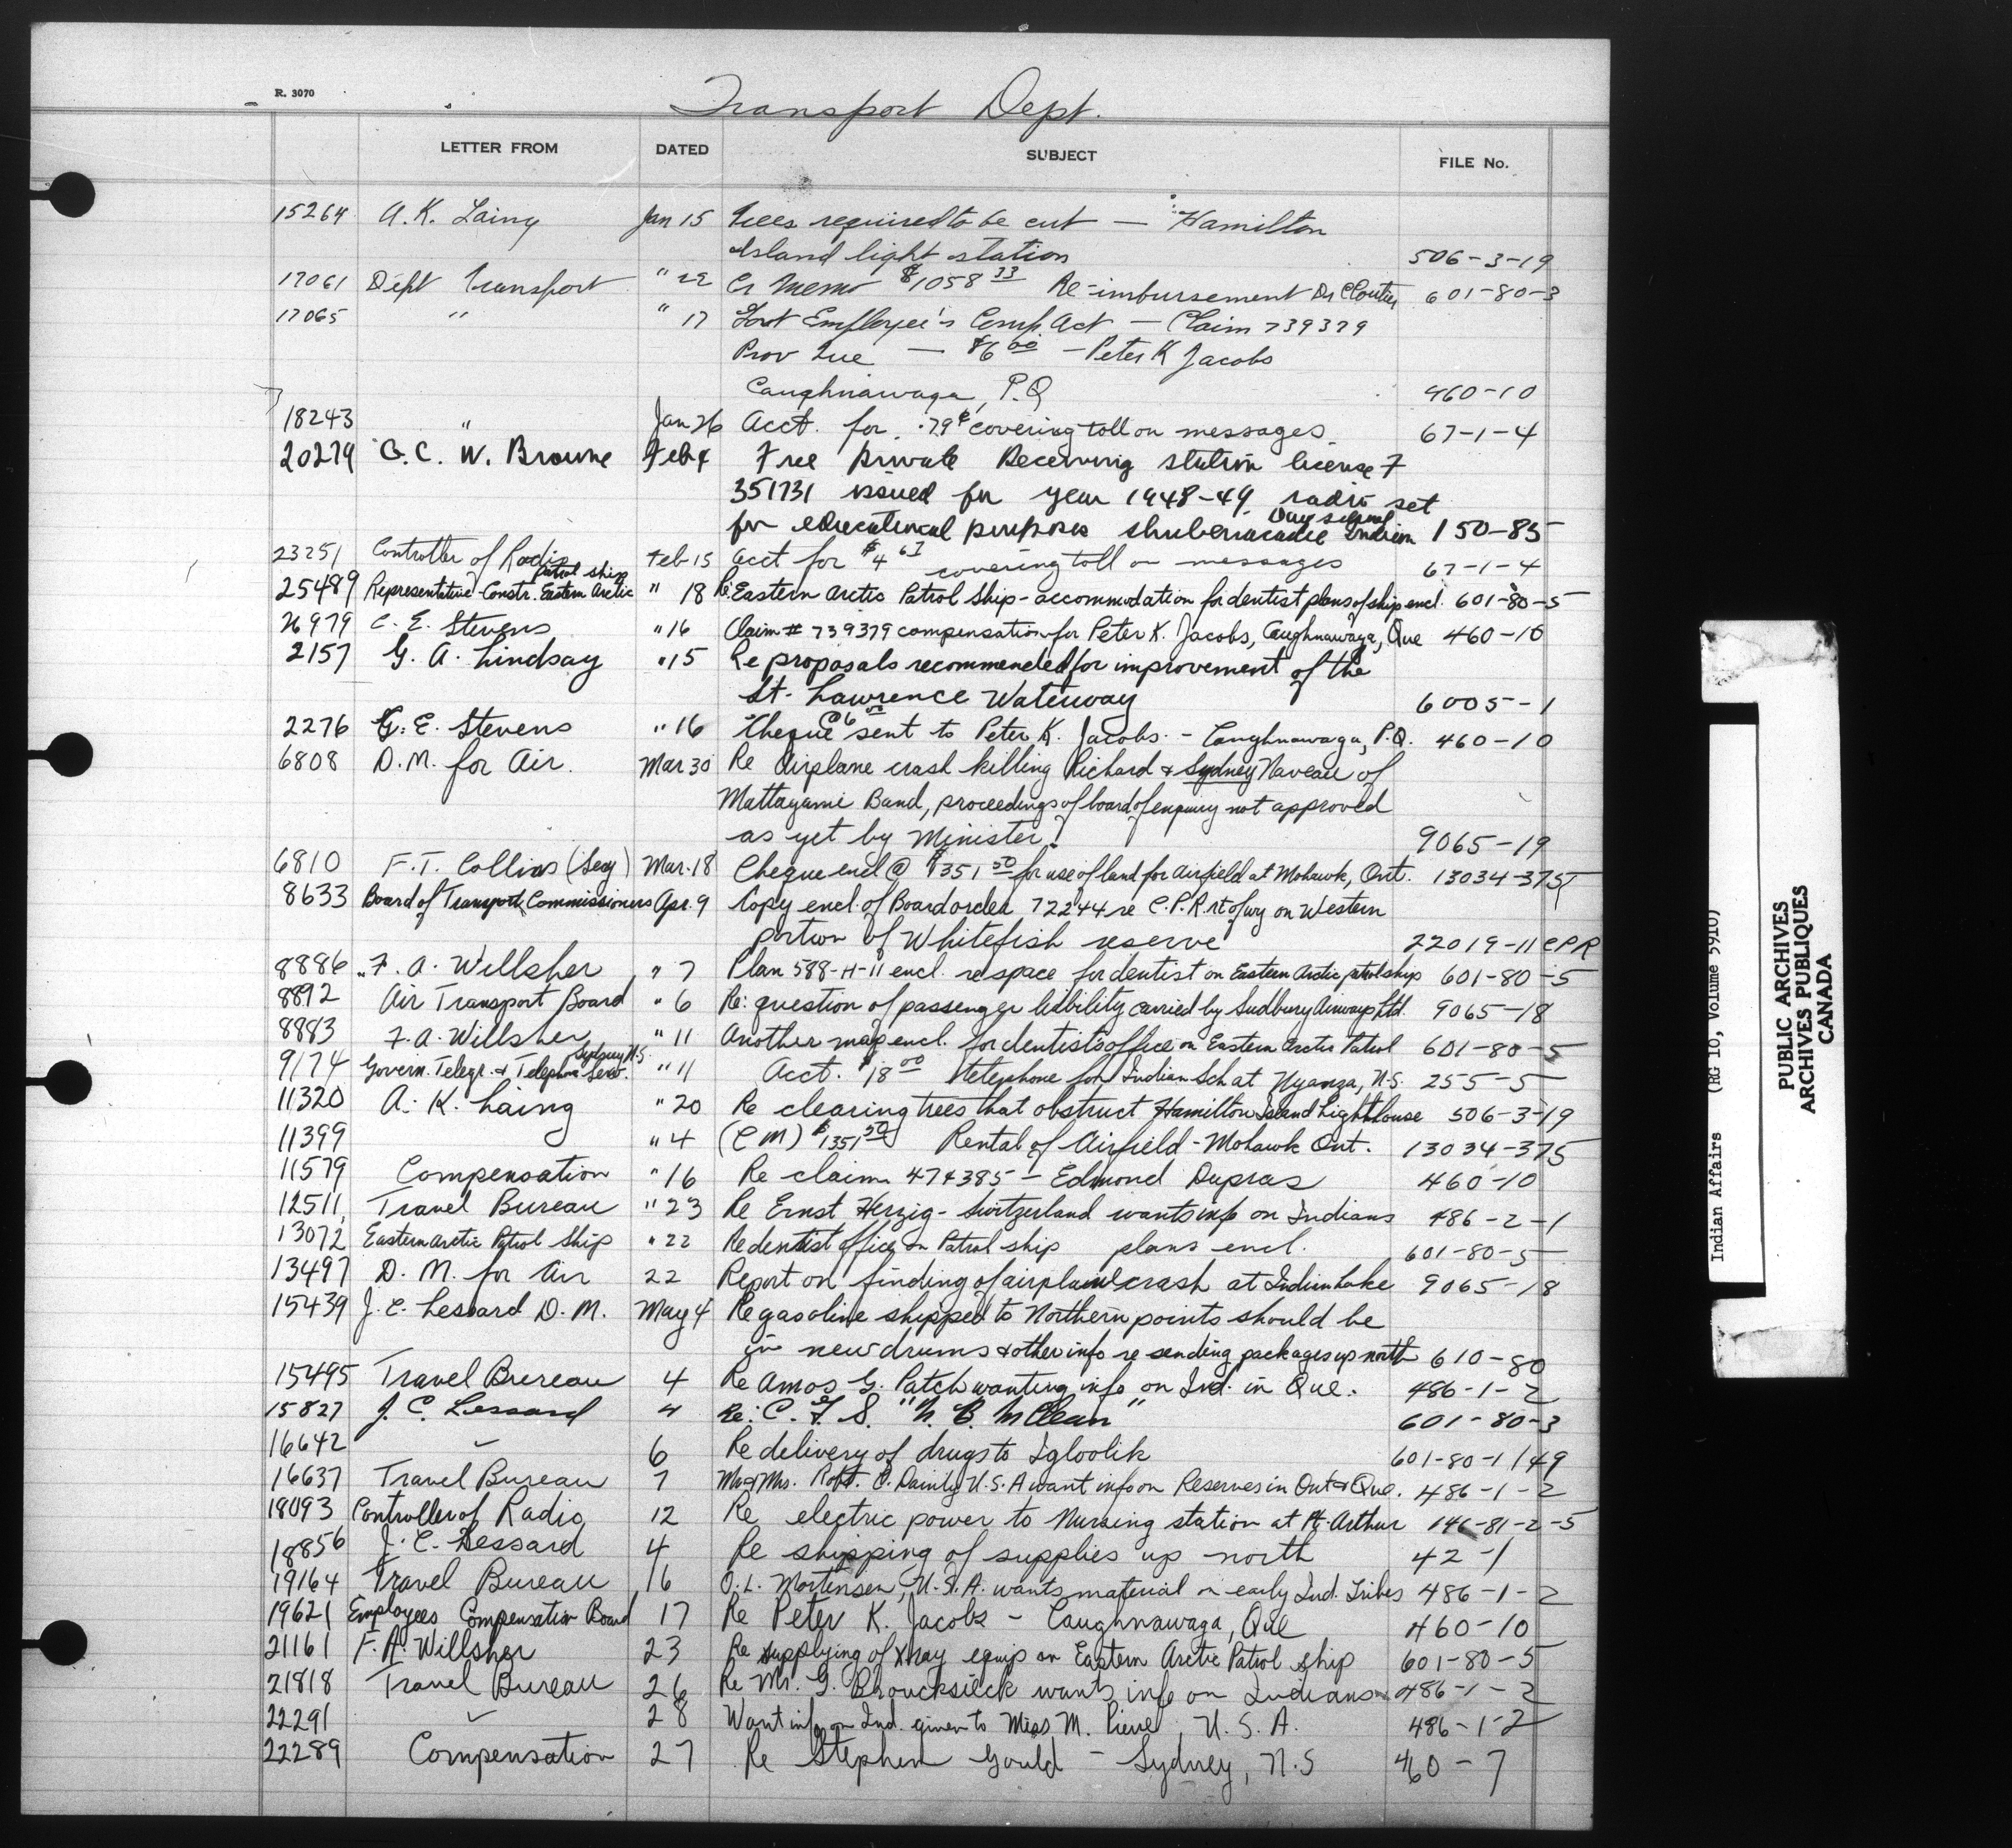 R. 3070
Transport Dept.
LETTER FROM DATED SUBJECT FILE No.
15264 A. K. Laing Jan 15 Trees required to be cut — Hamilton
Island light station 506-3-19
17061 Dept Transport " 22 Cr Memo $1058 33 Re-imbursement Dr Cloutier 601-80-3
17065 " " 17 Govt Employee's Comp. Act — Claim 739379
Prov Que — $6 00 - Peter K Jacobs
Caughnawaga, P.Q 460-10
18243 " Jan 26 Acct. for .79¢ covering toll on messages. 67-1-4
20279 G. C. W. Browne Feb 4 Free Private Receiving station license F
351731 issued for year 1948-49 radio set
for educational purposes Shubenacadie Indian Day School 150-85
23251 Controller of Radio Feb 15 Acct for $4 67 covering toll on messages 67-1-4
25489 Representative - Constr. Eastern Arctic Patrol ship " 18 Re: Eastern Arctic Patrol Ship - accommodation for dentist plans of ship encl. 601-80-5
26979 C. E. Stevens " 16 Claim # 739379 compensation for Peter K. Jacobs, Caughnawaga, Que 460-10
2157 G. A. Lindsay " 15 Re proposals recommended for improvement of the
St. Lawrence Waterway 6005-1
2276 G. E. Stevens " 16 Cheque $6 00 sent to Peter K. Jacobs. - Caughnawaga, P.Q. 460-10
6808 D.M. for Air. Mar 30 Re Airplane crash killing Richard & Sydney Naveau of
Mattagami Band, proceedings of board of enquiry not approved
as yet by Minister. 9065-19
6810 F. T. Collins (Secy) Mar. 18 Cheque encl @ $1351 50 for use of land for airfield at Mohawk, Ont. 13034-375
8633 Board of Transport Commissioners Apr. 9 Copy encl. of Board order 72244 re C.P.R. rt of wy on Western
portion of Whitefish reserve 22019-11 CPR
8886 F. A. Willsher " 7 Plan 588-H-11 encl. re space for dentist on Eastern Arctic patrol ship 601-80-5
8892 Air Transport Board " 6 Re: question of passenger liability carried by Sudbury Airways Ltd. 9065-18
8883 F. A. Willsher " 11 Another map encl. for dentist's office on Eastern Arctic Patrol 601-80-5
9174 Govern. Telegr. & Telephone Serv. Sydney N.S. " 11 Acct. $18 00 telephone for Indian Sch at Nyanza, N.S. 255-5
11320 A. K. Laing " 20 Re clearing trees that obstruct Hamilton Island Lighthouse 506-3-19
11399 " 4 (C M) $1351 50 Rental of Airfield - Mohawk Ont. 13034-375
11579 Compensation " 16 Re claim 474385 - Edmond Dupras 460-10
12511 Travel Bureau " 23 Re Ernst Herzig - Switzerland wants info on Indians 486-2-1
13072 Eastern Arctic Patrol Ship " 22 Re dentist office on Patrol ship plans encl. 601-80-5
13497 D. M. for Air 22 Report on finding of airplane crash at Indian Lake 9065-18
15439 J. C. Lessard D. M. May 4 Re gasoline shipped to Northern points should be
in new drums & other info re sending packages up north 610-80
15495 Travel Bureau 4 Re Amos G. Patch wanting info on Ind. in Que. 486-1-2
15827 J. C. Lessard 4 Re: C. G. S. "N. B. McLean" 601-80-3
16642 " 6 Re delivery of drugs to Igloolik 601-80-1/49
16637 Travel Bureau 7 Mr & Mrs. Robt. C. Dainty U.S.A want info on Reserves in Ont & Que. 486-1-2
18093 Controller of Radio 12 Re electric power to Nursing station at Pt. Arthur 146-81-2-5
18856 J. C. Lessard 4 Re shipping of supplies up north 42-1
19164 Travel Bureau 16 O. L. Mortensen, U.S.A. wants material on early Ind. Tribes 486-1-2
19621 Employees Compensation Board 17 Re Peter K. Jacobs - Caughnawaga, Que 460-10
21161 F. A. Willsher 23 Re supplying of Xray equip on Eastern Arctic Patrol ship 601-80-5
21818 Travel Bureau 26 Re Mr. G. wants info on Indians 486-1-2
22291 " 28 Want info on Ind. given to Miss M. U.S.A. 486-1-2
22289 Compensation 27 Re Stephen Gould - Sydney, N.S 460-7
Indian Affairs (RG 10, Volume 5910)
PUBLIC ARCHIVES
ARCHIVES PUBLIQUES
CANADA